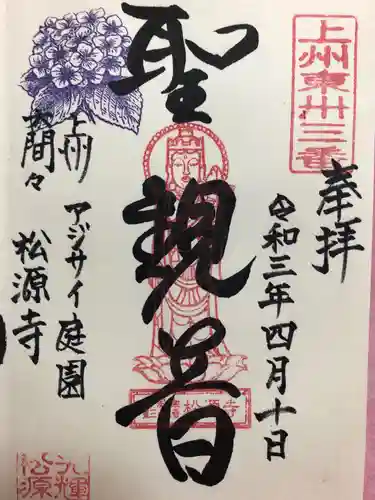 上州東卅三番
奉拝
令和三年四月十日
聖観音
上州
大間々
アジサイ庭園
松源寺